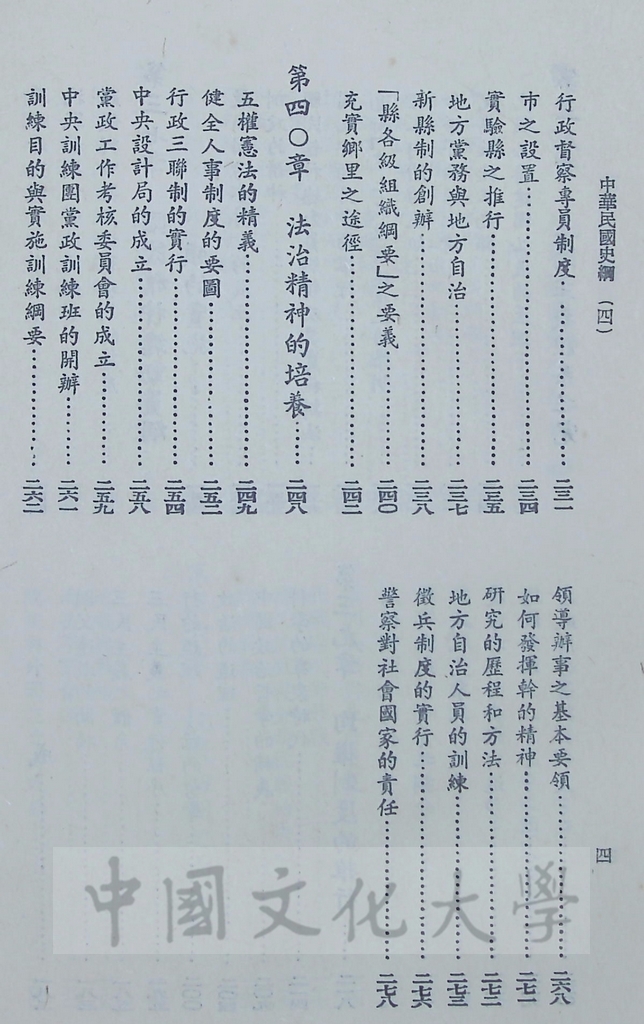 中華民國史綱（四）
行政督察專員制度……………二三一
市之設置……………二三四
實驗縣之推行……………二三五
地方黨務與地方自治……………二三七
新縣制的創辦……………二三八
「縣各級組織綱要」之要義……………二四〇
充實鄉里之途徑……………二四二
第四〇章　法治精神的培養……二四八
五權憲法的精義……………二四九
健全人事制度的要圖……………二五二
行政三聯制的實行……………二五四
中央設計局的成立……………二五八
黨政工作考核委員會的成立……………二五九
中央訓練團黨政訓練班的開辦……………二六一
訓練目的與實施訓練綱要……………二六二
領導辦事之基本要領……………二六八
如何發揮幹的精神……………二七一
研究的歷程和方法……………二七二
地方自治人員的訓練……………二七三
徵兵制度的實行……………二七六
警察對社會國家的責任……………二七八
四
中國文化大學